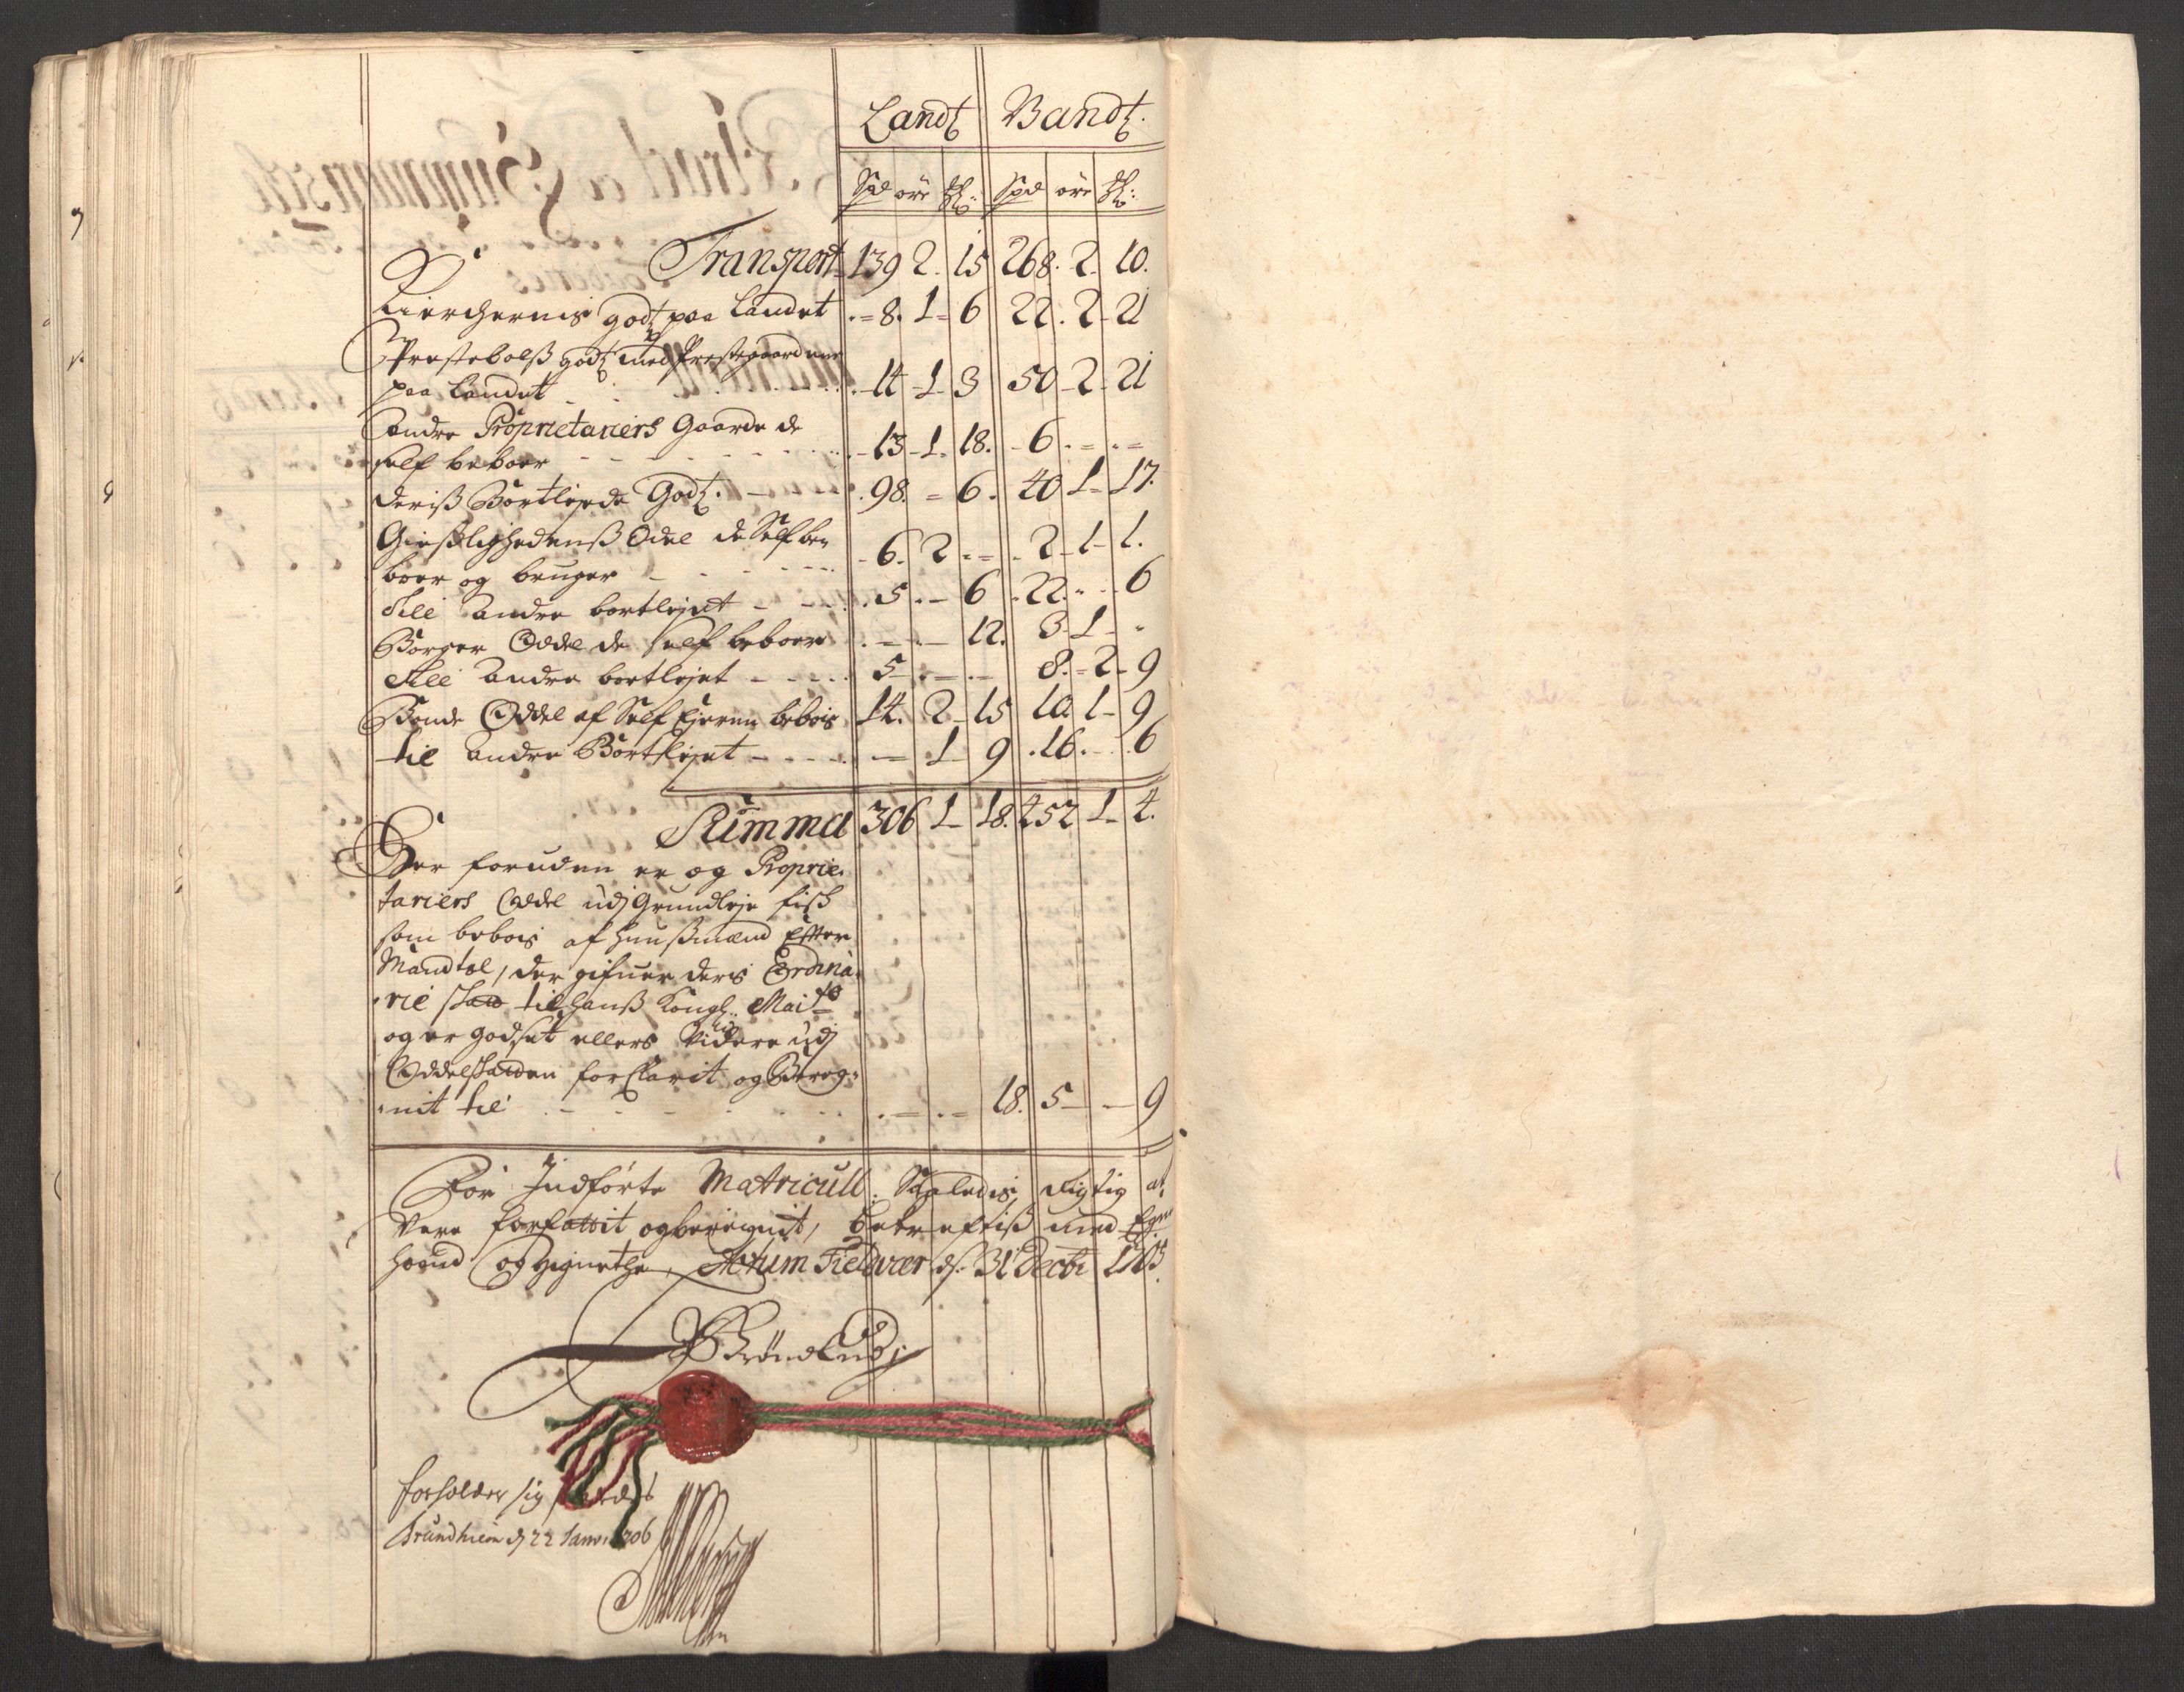 Landt Vandt.
Spd öre ₰: Spd öre ₰:
Transport 139 2. 15 268. 2. 10.
Kierchernis godtz paa Landet .=8. 1= 6 22. 2- 21
Prestebolß godtz med Prestegaardene
paa Landet - 14 - 1- 3 50- 2- 21
Andre Proprietariers Gaarde de
self beboer - 13- 1. 18. - 6. =. =
Deriß Bortlejede Godtz. - . 98. = 6. 40 1- 17.
Giestlighedenß Odel de Self be=
boer og bruger - 6. 2 . = . 2- 1- 1.
Till andre bortlejet - . 5. - 6 . 22. . . 6
Borger Oddel de self beboer . - . - 12. 3- 1- .
Till andre bortlejet - 5 - . - . 8. = 2- 9
Bonde Oddel af Self Ejerne bebois 14. 2- 15 10. 1- 9
til andre Bortlejet - - 1- 9 . 16. - . 6
Summa 306 1- 18. 452 1- 4.
Der foruden er og Proprie=
tariers Oddel udj Grundleje fisk
som bebois af Huußmænd Efter
Mandtal, der gifuer deris Ordina=
rie skatt til Hanß Kongl: Maits
og er godset ellers videre udj
Oddelskatten forklarit og Bereg=
nit til . - . = 18. 5- - 9
For Indförte Matricull. Saaledis rigtig at
vere forfattit og beregnit, bekreftiß med Egen
haand og Zignethe, Actum Tieldvær d. 31 Decbr 1705.
forholder sig
Trundhiem d 22 Janv: 1706